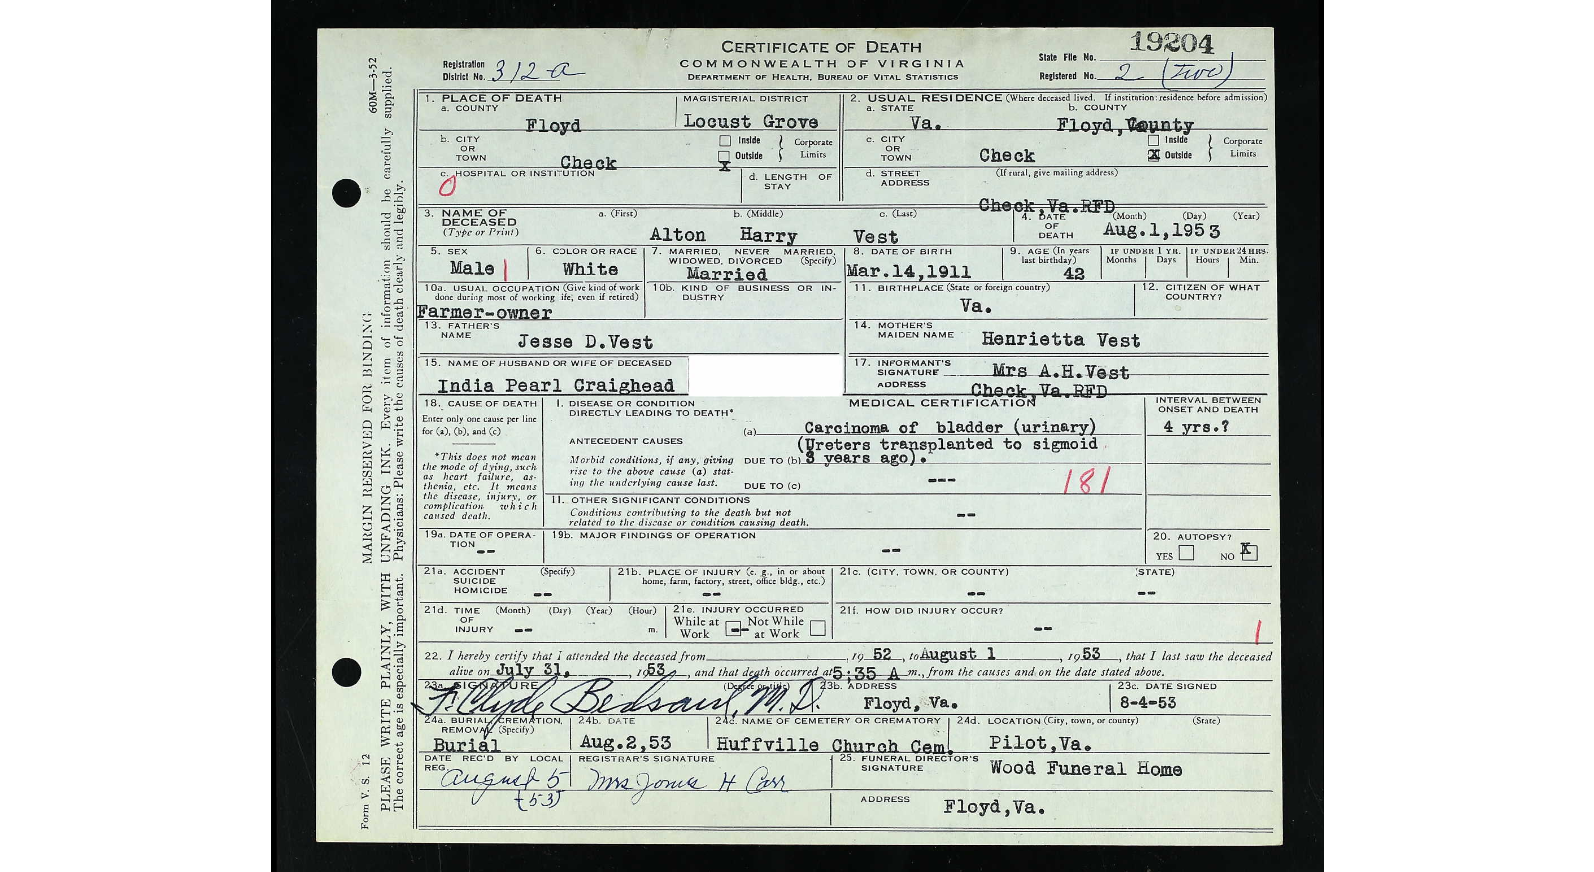 CERTIFICATE OF DEATH
COMMONWEALTH OF VIRGINIA
DEPARTMENT OF HEALTH, BUREAU OF VITAL STATISTICS
Registration District No. 312-a
State File No. 19204
Registered No. 2 (Two)
1. PLACE OF DEATH
a. COUNTY Floyd
MAGISTERIAL DISTRICT Locust Grove
b. CITY OR TOWN Check
Inside Outside X Corporate Limits
c. HOSPITAL OR INSTITUTION
0
d. LENGTH OF STAY
2. USUAL RESIDENCE (Where deceased lived. If institution: residence before admission)
a. STATE Va.
b. COUNTY Floyd, County
c. CITY OR TOWN Check
Inside X Outside Corporate Limits
d. STREET ADDRESS (If rural, give mailing address)
Check, Va. RFD
3. NAME OF DECEASED (Type or Print)
a. (First) b. (Middle) c. (Last)
Alton Harry Vest
4. DATE OF DEATH (Month) (Day) (Year)
Aug.1,1953
5. SEX Male 1
6. COLOR OR RACE White
7. MARRIED, NEVER MARRIED, WIDOWED, DIVORCED (Specify) Married
8. DATE OF BIRTH Mar.14,1911
9. AGE (In years last birthday) 42
IF UNDER 1 YR. Months Days
IF UNDER 24 HRS. Hours Min.
10a. USUAL OCCUPATION (Give kind of work done during most of working life, even if retired)
Farmer-owner
10b. KIND OF BUSINESS OR INDUSTRY
11. BIRTHPLACE (State or foreign country) Va.
12. CITIZEN OF WHAT COUNTRY?
13. FATHER'S NAME Jesse D.Vest
14. MOTHER'S MAIDEN NAME Henrietta Vest
15. NAME OF HUSBAND OR WIFE OF DECEASED
India Pearl Craighead
17. INFORMANT'S SIGNATURE Mrs A.H.Vest
ADDRESS Check,Va.RFD
18. CAUSE OF DEATH
Enter only one cause per line for (a), (b), and (c)
*This does not mean the mode of dying, such as heart failure, asthenia, etc. It means the disease, injury, or complication which caused death.
MEDICAL CERTIFICATION
I. DISEASE OR CONDITION DIRECTLY LEADING TO DEATH*
(a) Carcinoma of bladder (urinary)
INTERVAL BETWEEN ONSET AND DEATH
4 yrs.?
ANTECEDENT CAUSES
Morbid conditions, if any, giving rise to the above cause (a) stating the underlying cause last.
(Ureters transplanted to sigmoid
DUE TO (b) 3 years ago).
DUE TO (c) ---
181
II. OTHER SIGNIFICANT CONDITIONS
Conditions contributing to the death but not related to the disease or condition causing death.
--
19a. DATE OF OPERATION --
19b. MAJOR FINDINGS OF OPERATION --
20. AUTOPSY?
YES NO X
21a. ACCIDENT SUICIDE HOMICIDE (Specify) --
21b. PLACE OF INJURY (e. g., in or about home, farm, factory, street, office bldg., etc.) --
21c. (CITY, TOWN, OR COUNTY) (STATE)
-- --
21d. TIME OF INJURY (Month) (Day) (Year) (Hour) m.
--
21e. INJURY OCCURRED
While at Work -- Not While at Work
21f. HOW DID INJURY OCCUR?
--
1
22. I hereby certify that I attended the deceased from 1952, to August 1, 1953, that I last saw the deceased
alive on July 31, 1953, and that death occurred at 5:35 A m., from the causes and on the date stated above.
23a. SIGNATURE (Degree or title)
F. Clyde Bedsaul, M.D.
23b. ADDRESS Floyd, Va.
23c. DATE SIGNED 8-4-53
24a. BURIAL, CREMATION, REMOVAL (Specify) Burial
24b. DATE Aug.2,53
24c. NAME OF CEMETERY OR CREMATORY Huffville Church Cem.
24d. LOCATION (City, town, or county) (State) Pilot,Va.
DATE REC'D BY LOCAL REG. August 5 (53)
REGISTRAR'S SIGNATURE Mrs H Carr
25. FUNERAL DIRECTOR'S SIGNATURE Wood Funeral Home
ADDRESS Floyd,Va.
60M—3-52
MARGIN RESERVED FOR BINDING
PLEASE WRITE PLAINLY, WITH UNFADING INK. Every item of information should be carefully supplied.
The correct age is especially important. Physicians: Please write the causes of death clearly and legibly.
Form V. S. 12